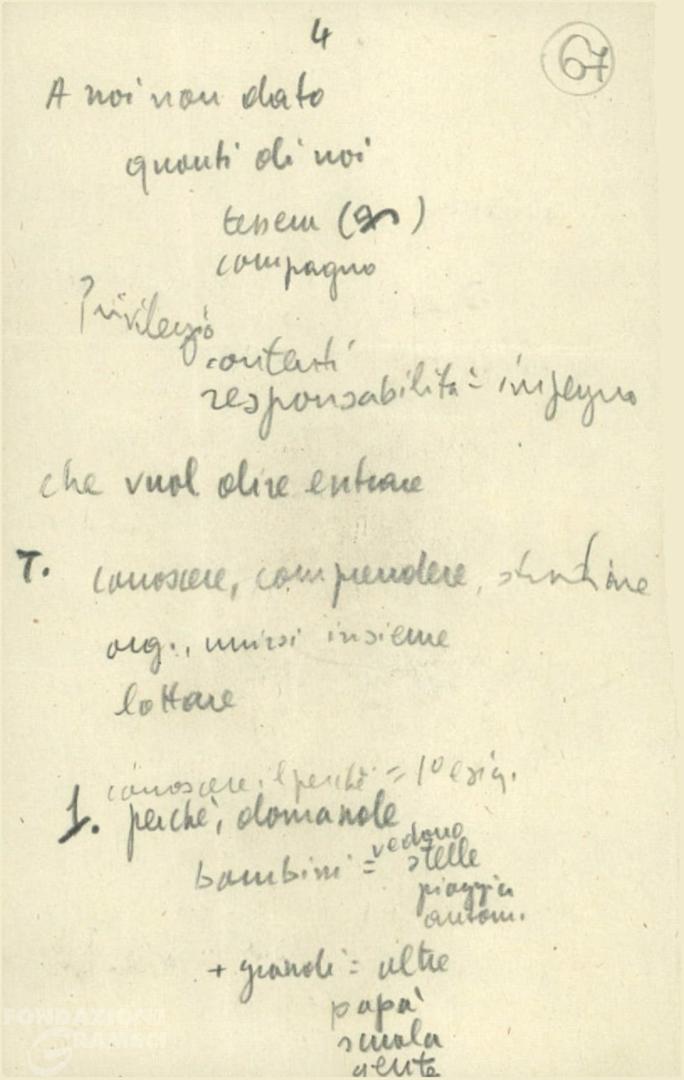 4
67
A noi non dato
quanti di noi
tessera (
compagno
Privilegio
contenti
responsabilità = impegno
che vuol dire entrare
T. conoscere, comprendere,
org., unirsi insieme
lottare
conoscere il perchè = 1º esig.
1. perchè, domande
bambini = vedono
stelle
pioggia
autom.
+ grandi = altre
papà
scuola
gente
FONDAZIONE
GRAMSCI